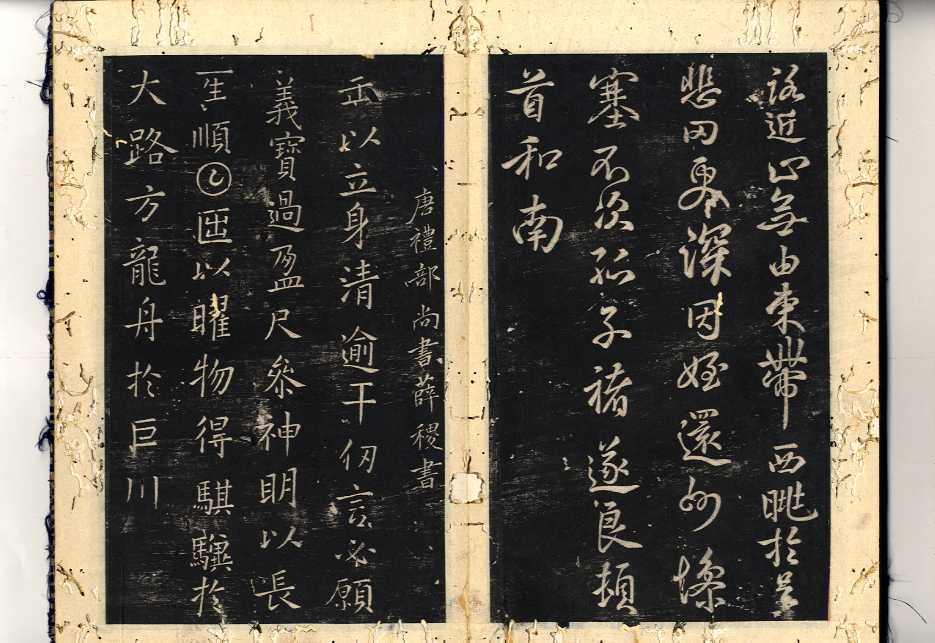 路近止無由束帶西眺於邑
悲罔更深因姪還州慘
塞不次孤子褚遂良頓
首和南
唐禮部尚書薛稷書
𠙺以立身清逾千仞言必願
義寶過盈尺參神明以長
𤯔順𡆠𠥱以曜物得騏驥於
大路方龍舟於巨川